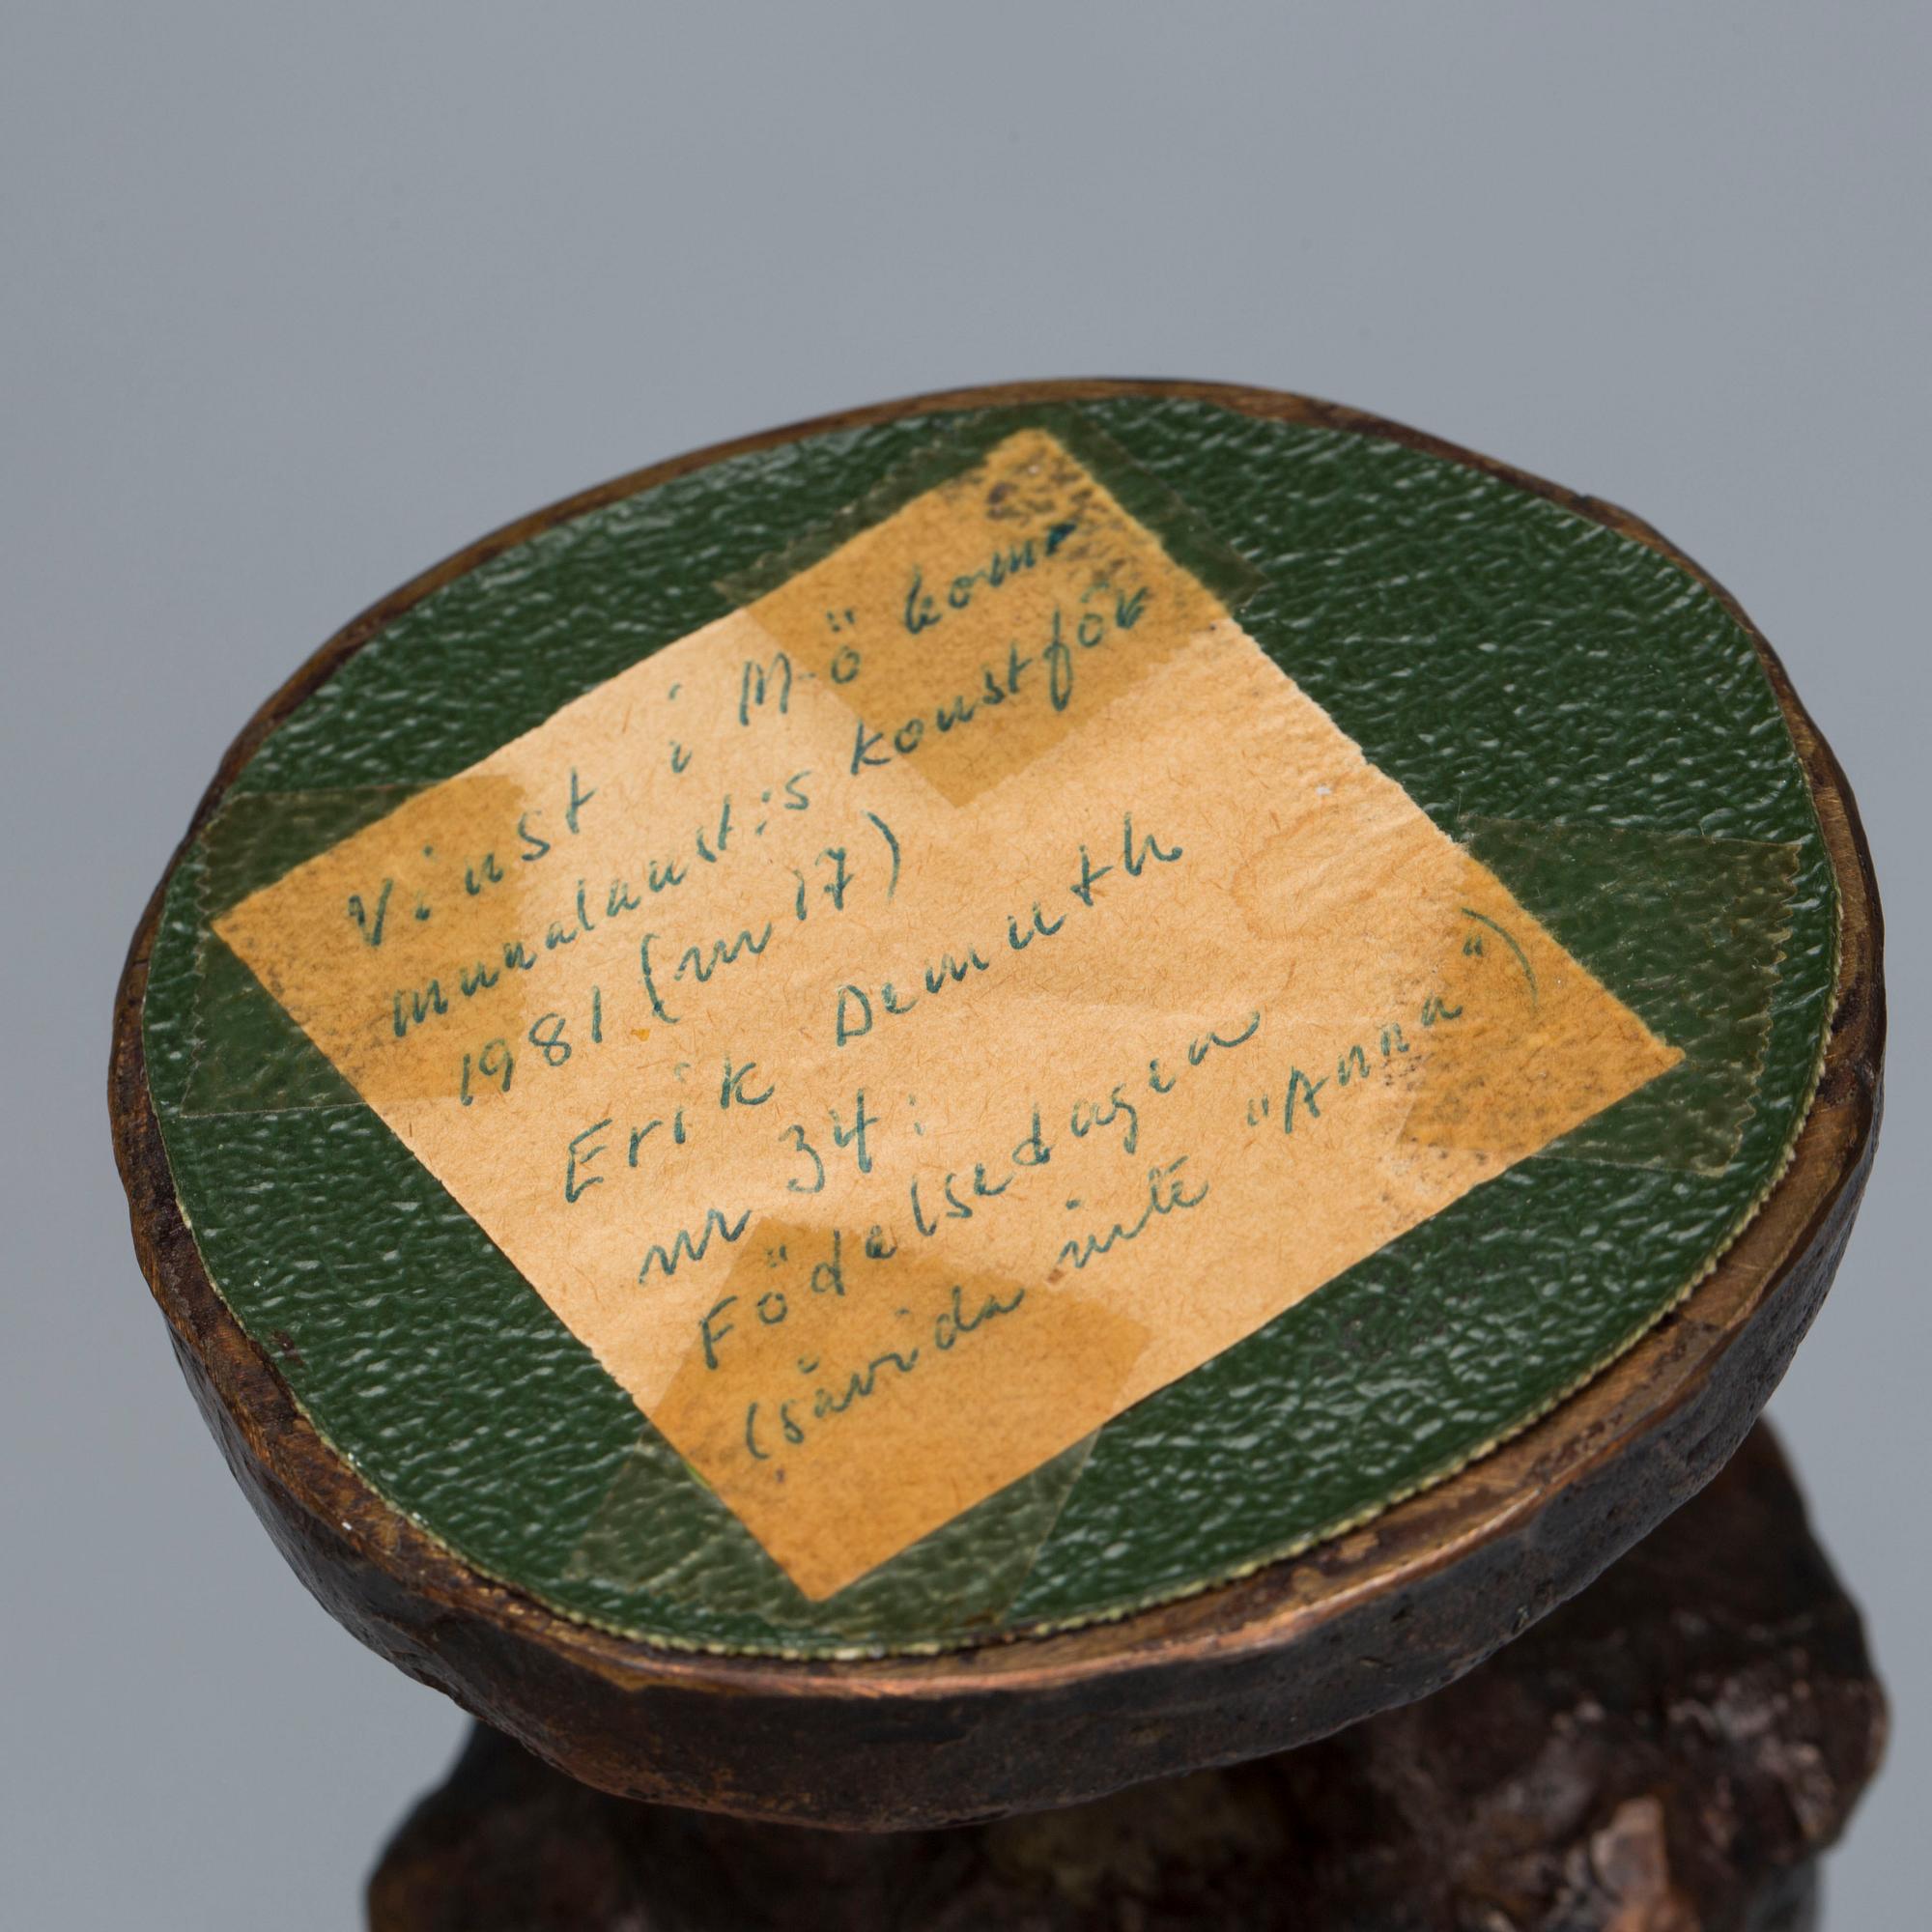 Vinst i M-ö kom-
munalanst:s konstför
1981 (nr 17)
Erik Demuth
nr 34:
Födelsedagen
(såvida inte "Anna")